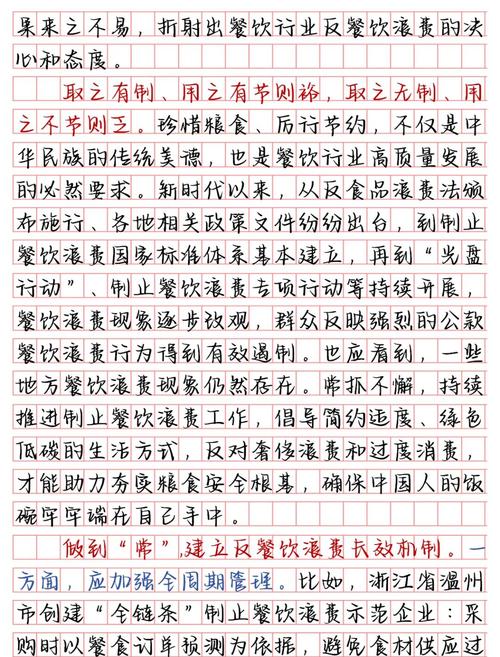 果来之不易，折射出餐饮行业反餐饮浪费的决
心和态度。
取之有制、用之有节则裕，取之无制、用
之不节则乏。珍惜粮食、厉行节约，不仅是中
华民族的传统美德，也是餐饮行业高质量发展
的必然要求。新时代以来，从反食品浪费法颁
布施行、各地相关政策文件纷纷出台，到制止
餐饮浪费国家标准体系基本建立，再到“光盘
行动”、制止餐饮浪费专项行动等持续开展，
餐饮浪费现象逐步改观，群众反映强烈的公款
餐饮浪费行为得到有效遏制。也应看到，一些
地方餐饮浪费现象仍然存在。常抓不懈，持续
推进制止餐饮浪费工作，倡导简约适度、绿色
低碳的生活方式，反对奢侈浪费和过度消费，
才能助力夯实粮食安全根基，确保中国人的饭
碗牢牢端在自己手中。
做到“常”，建立反餐饮浪费长效机制。一
方面，应加强全周期管理。比如，浙江省温州
市创建“全链条”制止餐饮浪费示范企业：采
购时以餐食订单预测为依据，避免食材供应过